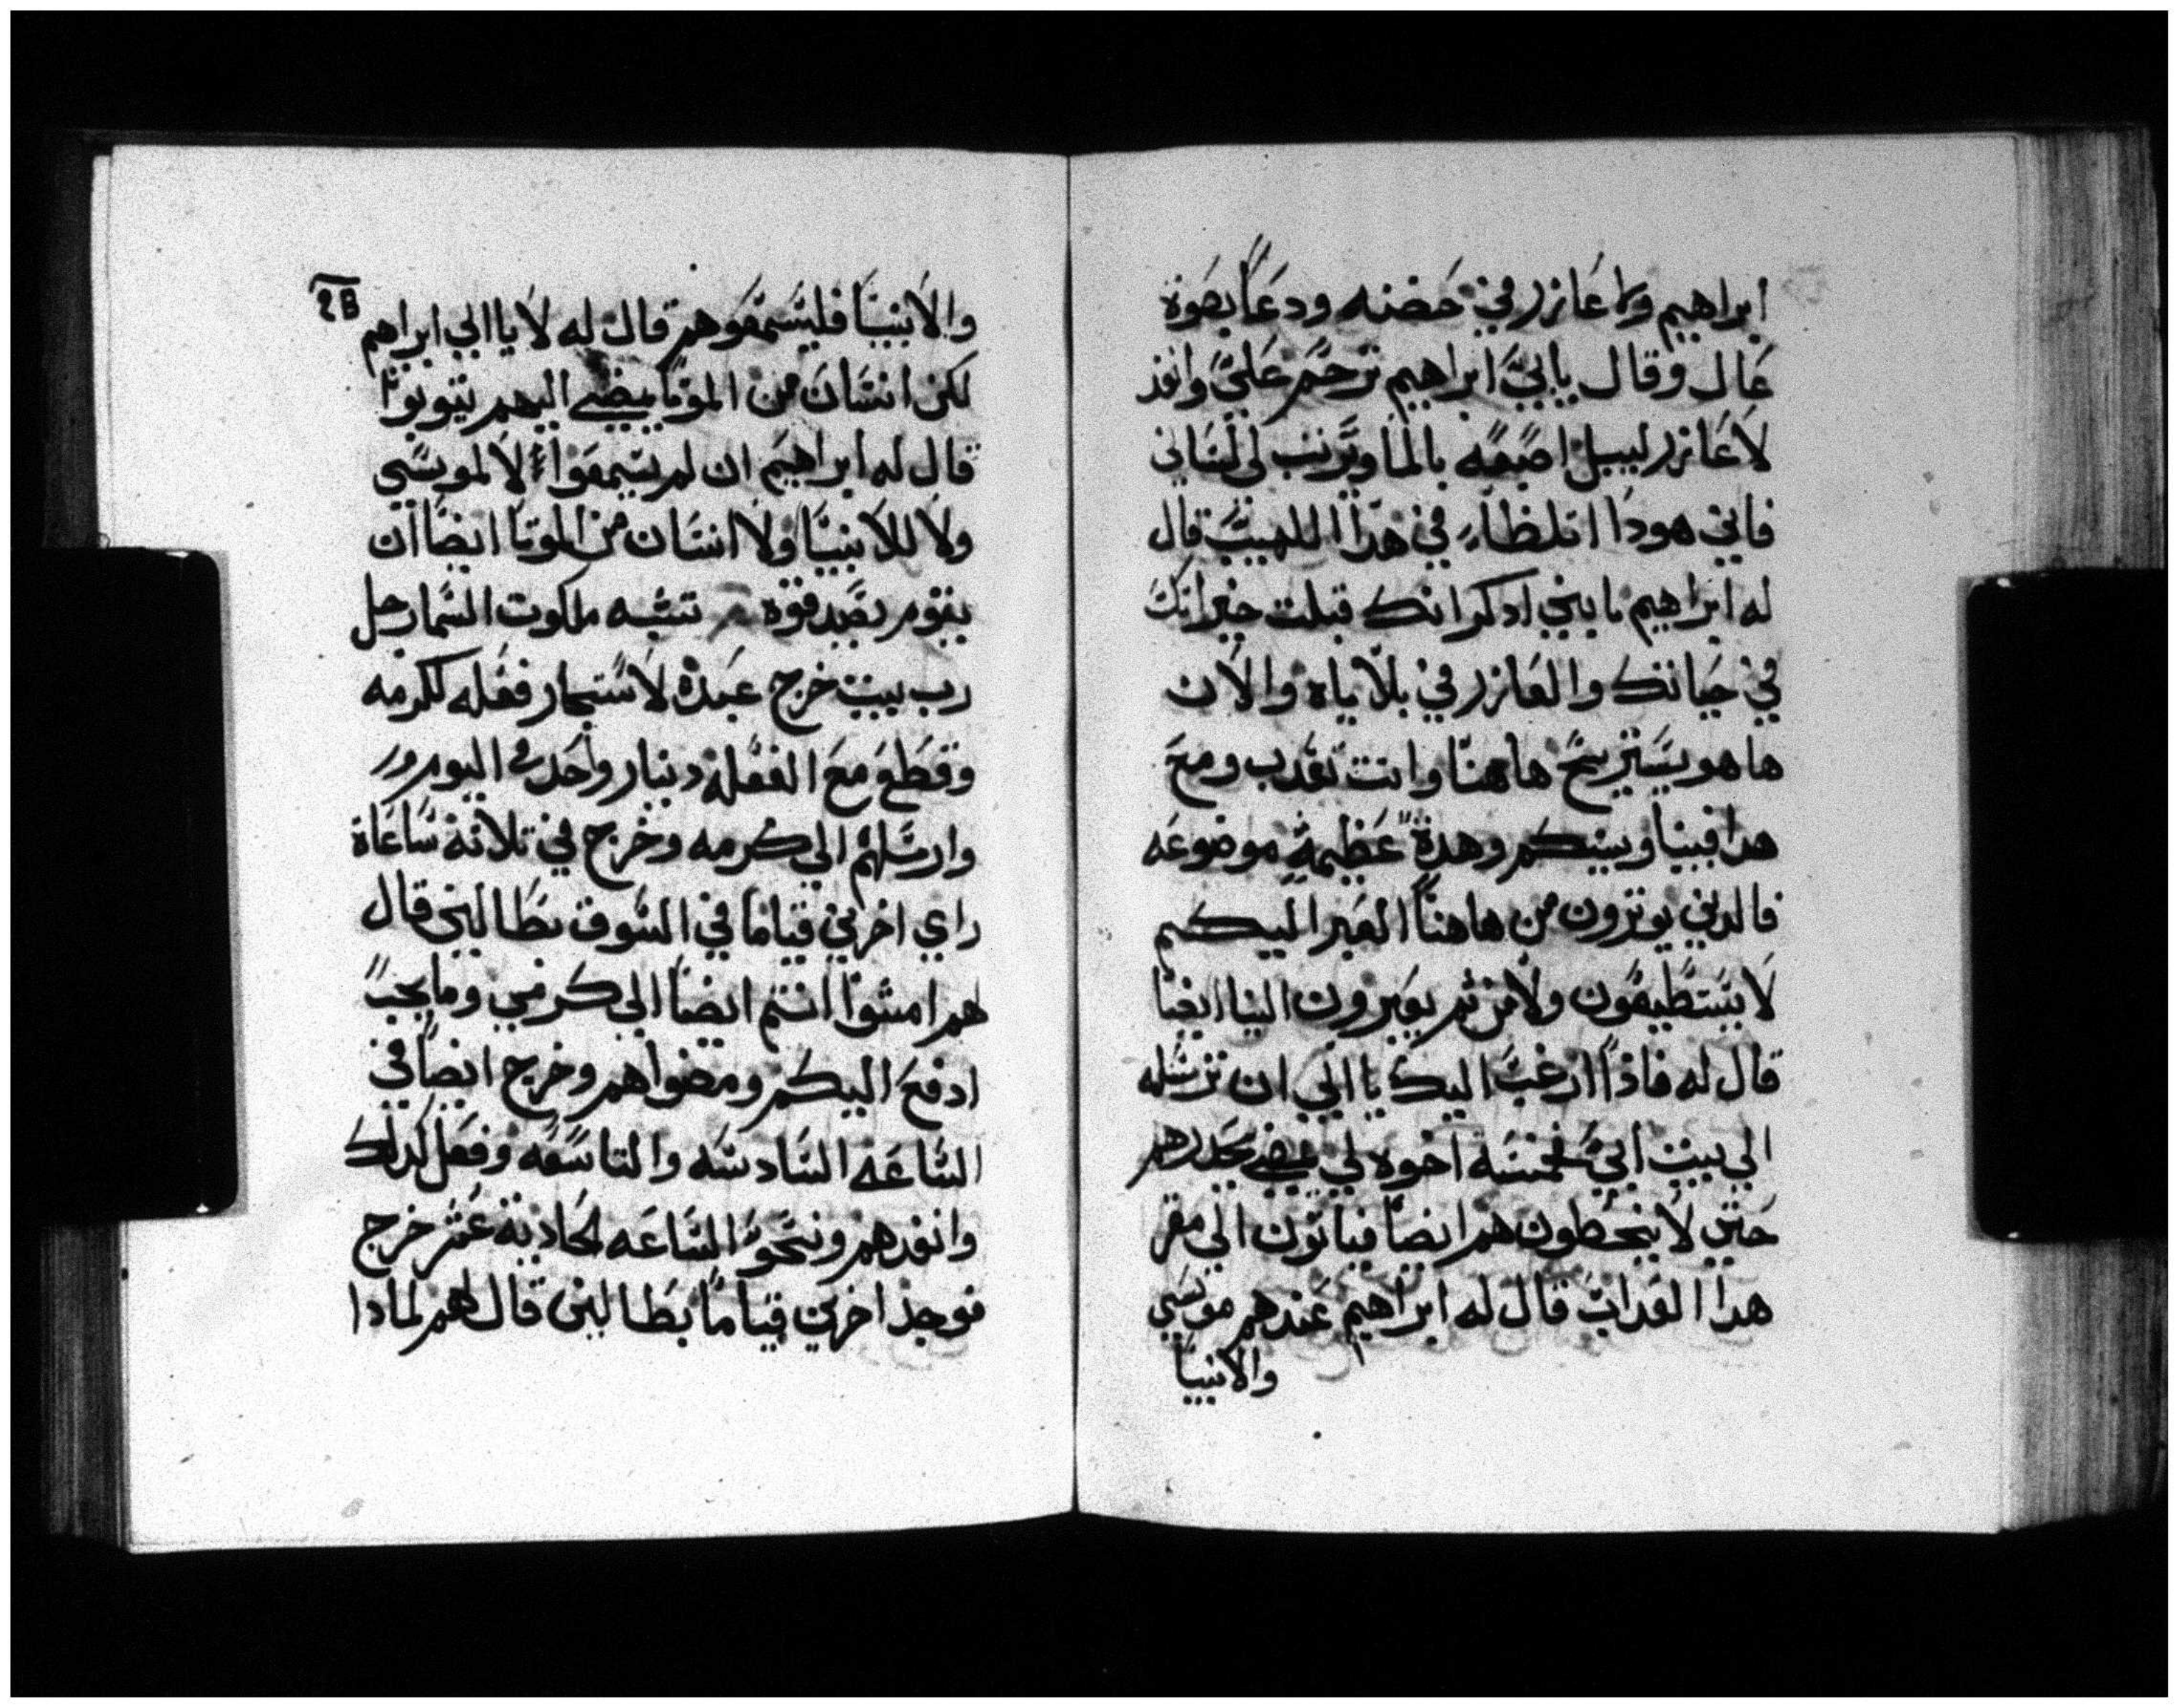 ابراهيم ولاعازر في حضنه ودعا بصوة
عال وقال يا ابي ابراهيم ترحم علي وانفد
لاعازر ليبل اصبعه بالما ويرتب لي لساني
فاني هودا اتلظا في هدا اللهيب قال
له ابراهيم يابني ادكر انك قبلت خيراتك
في حياتك والعازر في بلاياه والان
هاهو يستريح هاهنا وانت تعدب ومع
هدا فبينا وبينكم وهدة عظيمة موضوعه
فالدين يوترون من هاهنا العبر اليكم
لا يستطيعون ولا من تم يعبرون الينا ايضا
قال له فاذا ارغب اليك يا ابي ان ترسله
الي بيت ابي خمسة اخوه لي يحدرهم
حتي لا ينحطون هم ايضا فياتون الي مقر
هدا العداب قال له ابراهيم عندهم موسي
والانبيا
والانبيا فليسمعوهم قال له لا يا ابي ابراهيم
لكن انسان من الموتا يمضي اليهم يتوبوا
قال له ابراهيم ان لم يسمعوا لا لموسي
ولا للانبيا ولا انسان من الموتا ايضا ان
يقوم يصدقوه تشبه ملكوت السما رجل
رب بيت خرج غدة لاستجار فعله لكرمه
وقطع مع الفعلة دينار واحد في اليوم
وارسلهم الي كرمه وخرج في تلاتة ساعاة
راي اخرين قياما في السوق بطالين قال
لهم امشوا انتم ايضا الي كرمي وما يجب
ادفع اليكم ومضوا هم وخرج ايضا في
الساعه السادسه والتاسعه وفعل كدلك
وانفدهم ونحو الساعه الحادية عشر خرج
فوجد اخرين قياما بطالين قال لهم لمادا